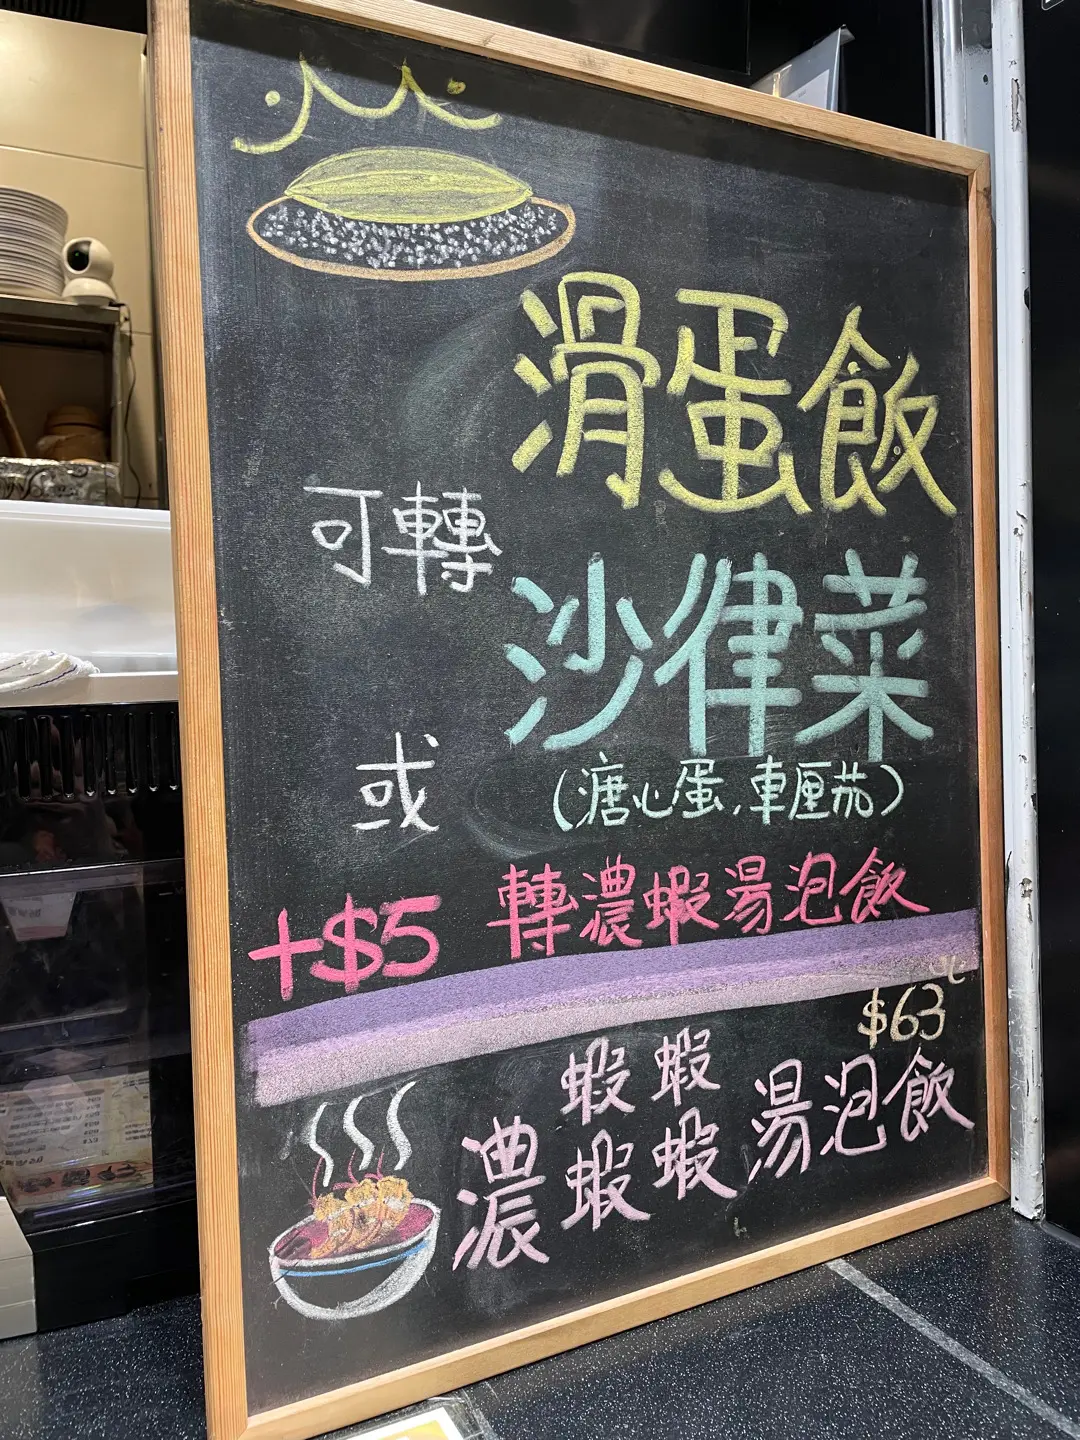 滑蛋飯
可轉
沙律菜
或
(溏心蛋,車厘茄)
+$5 轉濃蝦湯泡飯
$63
蝦蝦
濃蝦蝦湯泡飯